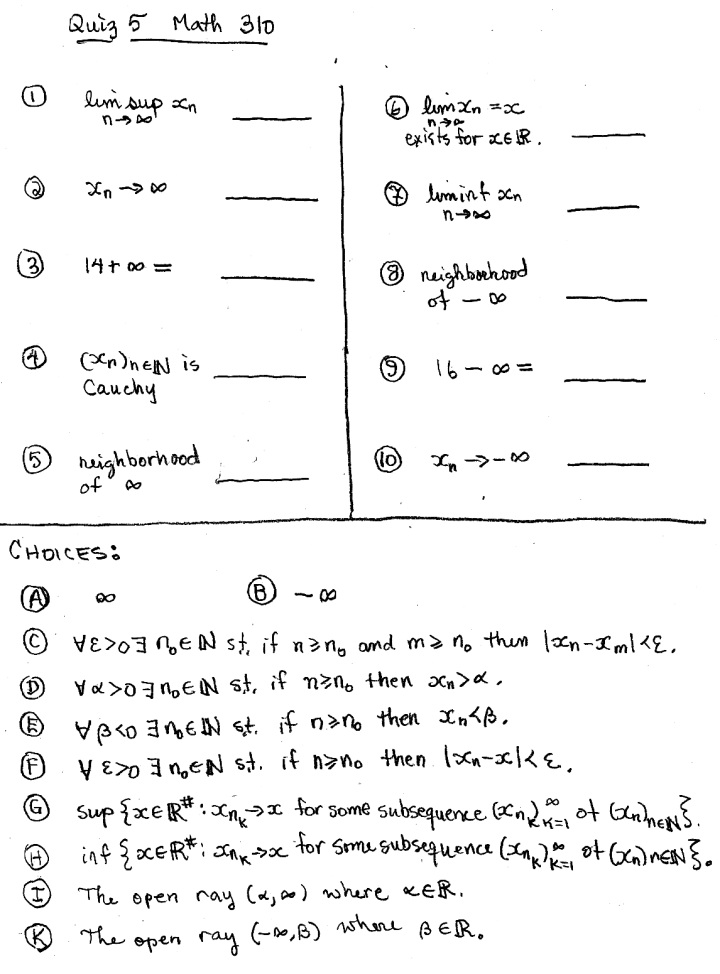 Quiz 5 Math 310
① lim sup xn
n→∞
② xn → ∞
③ 14 + ∞ =
④ (xn)n∈ℕ is
Cauchy
⑤ neighborhood
of ∞
⑥ lim xn = x
n→∞
exists for x∈ℝ.
⑦ lim inf xn
n→∞
⑧ neighborhood
of − ∞
⑨ 16 − ∞ =
⑩ xn → −∞
CHOICES:
Ⓐ ∞ Ⓑ − ∞
Ⓒ ∀ε>0 ∃ n₀∈ℕ st. if n≥n₀ and m≥n₀ then |xn−xm|<ε.
Ⓓ ∀α>0 ∃ n₀∈ℕ st. if n≥n₀ then xn>α.
Ⓔ ∀β<0 ∃ n₀∈ℕ st. if n≥n₀ then xn<β.
Ⓕ ∀ε>0 ∃ n₀∈ℕ st. if n≥n₀ then |xn−x|<ε.
Ⓖ sup {x∈ℝ#: xnₖ→x for some subsequence (xnₖ)∞k=1 of (xn)n∈ℕ}.
Ⓗ inf {x∈ℝ#: xnₖ→x for some subsequence (xnₖ)∞k=1 of (xn)n∈ℕ}.
Ⓘ The open ray (α,∞) where α∈ℝ.
Ⓚ The open ray (−∞,β) where β∈ℝ.